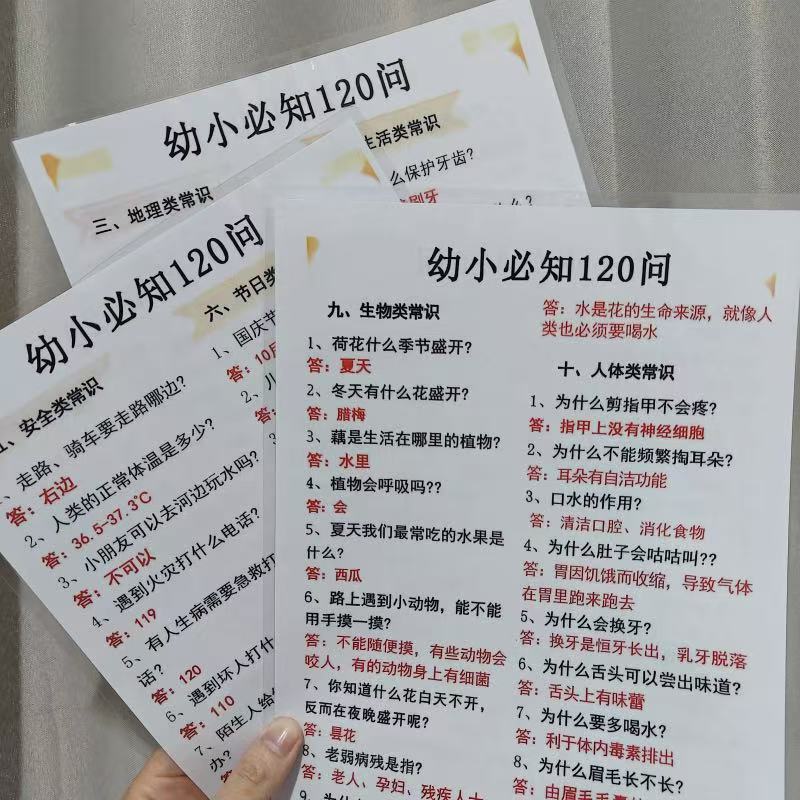 幼小必知120问
三、地理类常识
生活类常识
么保护牙齿?
刷牙
幼小必知120问
安全类常识
、走路、骑车要走路哪边?
答: 右边
2、人类的正常体温是多少?
答: 36.5-37.3℃
3、小朋友可以去河边玩水吗?
答: 不可以
4、遇到火灾打什么电话?
答: 119
5、有人生病需要急救打
话?
答: 120
6、遇到坏人打什
答: 110
7、陌生人给
办?
答:
六、节日类
1、国庆节
答: 10月
2、儿
幼小必知120问
九、生物类常识
1、荷花什么季节盛开?
答: 夏天
2、冬天有什么花盛开?
答: 腊梅
3、藕是生活在哪里的植物?
答: 水里
4、植物会呼吸吗??
答: 会
5、夏天我们最常吃的水果是
什么?
答: 西瓜
6、路上遇到小动物，能不能
用手摸一摸?
答: 不能随便摸，有些动物会
咬人，有的动物身上有细菌
7、你知道什么花白天不开，
反而在夜晚盛开呢?
答: 昙花
8、老弱病残是指?
答: 老人、孕妇、残疾人士
答: 水是花的生命来源，就像人
类也必须要喝水
十、人体类常识
1、为什么剪指甲不会疼?
答: 指甲上没有神经细胞
2、为什么不能频繁掏耳朵?
答: 耳朵有自洁功能
3、口水的作用?
答: 清洁口腔、消化食物
4、为什么肚子会咕咕叫??
答: 胃因饥饿而收缩，导致气体
在胃里跑来跑去
5、为什么会换牙?
答: 换牙是恒牙长出，乳牙脱落
6、为什么舌头可以尝出味道?
答: 舌头上有味蕾
7、为什么要多喝水?
答: 利于体内毒素排出
8、为什么眉毛长不长?
答: 由眉毛毛